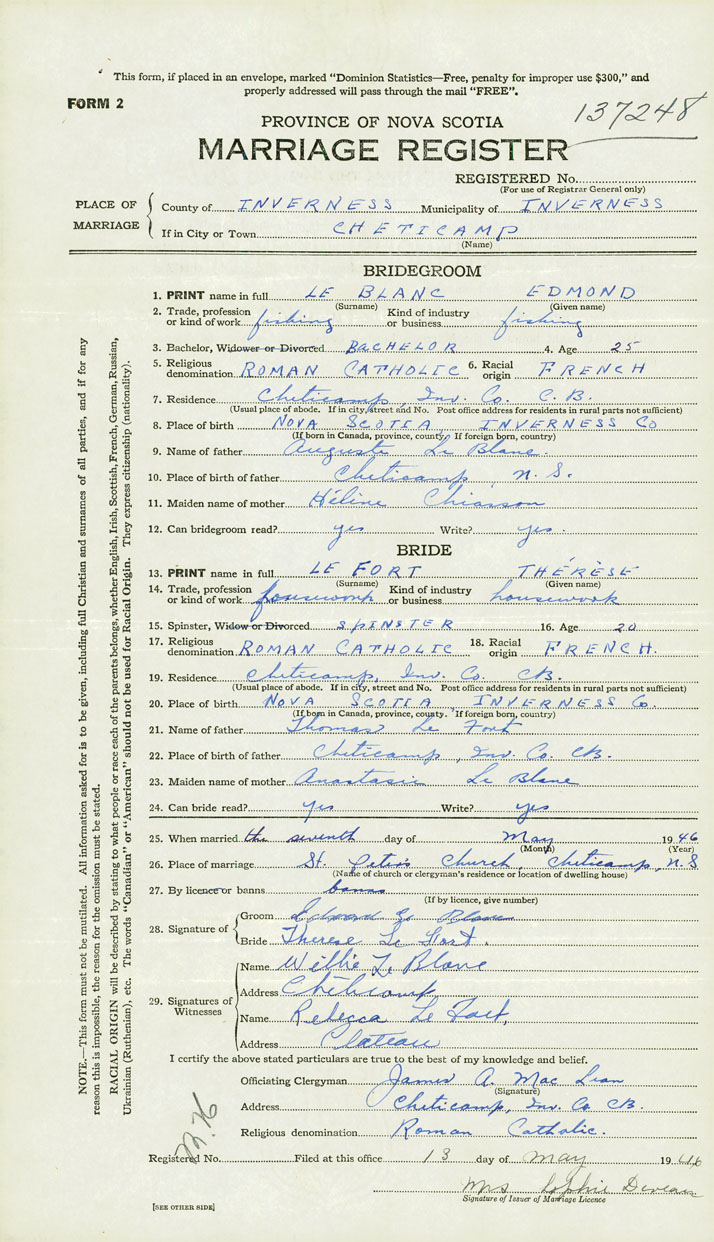 This form, if placed in an envelope, marked "Dominion Statistics—Free, penalty for improper use $300," and
properly addressed will pass through the mail "FREE".
FORM 2
137248
PROVINCE OF NOVA SCOTIA
MARRIAGE REGISTER
REGISTERED No.
(For use of Registrar General only)
PLACE OF MARRIAGE
County of INVERNESS Municipality of INVERNESS
If in City or Town CHETICAMP
(Name)
BRIDEGROOM
1. PRINT name in full LE BLANC EDMOND
(Surname) (Given name)
2. Trade, profession or kind of work fishing Kind of industry or business fishing
3. Bachelor, Widower or Divorced BACHELOR 4. Age 25
5. Religious denomination ROMAN CATHOLIC 6. Racial origin FRENCH
7. Residence Cheticamp, Inv. Co. C.B.
(Usual place of abode. If in city, street and No. Post office address for residents in rural parts not sufficient)
8. Place of birth NOVA SCOTIA INVERNESS CO
(If born in Canada, province, county. If foreign born, country)
9. Name of father Auguste Le Blanc.
10. Place of birth of father Cheticamp, N.S.
11. Maiden name of mother Hélène Chiasson
12. Can bridegroom read? yes Write? yes.
BRIDE
13. PRINT name in full LE FORT THÉRÈSE
(Surname) (Given name)
14. Trade, profession or kind of work housework Kind of industry or business housework
15. Spinster, Widow or Divorced SPINSTER 16. Age 20
17. Religious denomination ROMAN CATHOLIC 18. Racial origin FRENCH.
19. Residence Cheticamp, Inv. Co. CB.
(Usual place of abode. If in city, street and No. Post office address for residents in rural parts not sufficient)
20. Place of birth NOVA SCOTIA INVERNESS Co.
(If born in Canada, province, county. If foreign born, country)
21. Name of father Thomas Le Fort
22. Place of birth of father Cheticamp, Inv. Co. CB.
23. Maiden name of mother Anastasie Le Blanc
24. Can bride read? yes Write? yes
25. When married the seventh day of May 1946
(Month) (Year)
26. Place of marriage St. Peter's Church Cheticamp, N.S
(Name of church or clergyman's residence or location of dwelling house)
27. By licence or banns banns
(If by licence, give number)
28. Signature of
Groom Le Blanc
Bride Therese Le Fort.
29. Signatures of Witnesses
Name Willie Le Blanc
Address Cheticamp
Name Rebecca Le Fort,
Address Plateau
I certify the above stated particulars are true to the best of my knowledge and belief.
Officiating Clergyman James A. Mac Lean
(Signature)
Address Cheticamp, Inv. Co CB.
Religious denomination Roman Catholic.
Registered No. Filed at this office 13 day of May 1946
Mrs Sophie Deveau
Signature of Issuer of Marriage Licence
[SEE OTHER SIDE]
NOTE.—This form must not be mutilated. All information asked for is to be given, including full Christian and surnames of all parties, and if for any
reason this is impossible, the reason for the omission must be stated.
RACIAL ORIGIN will be described by stating to what people or race each of the parents belongs, whether English, Irish, Scottish, French, German, Russian,
Ukrainian (Ruthenian), etc. The words "Canadian" or "American" should not be used for Racial Origin. They express citizenship (nationality).